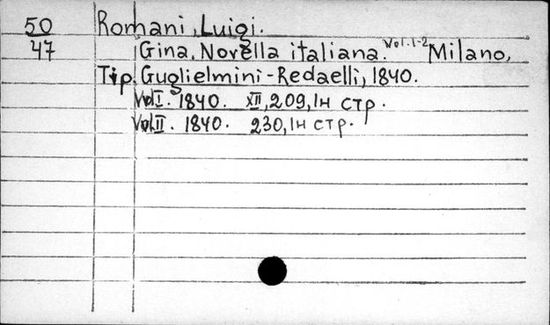 50 Romani, Luigi.
47 Gina. Novella italiana. Vol. 1-2 Milano,
Tip. Guglielmini-Redaelli, 1840.
Vol I. 1840. XII, 209, 1н стр.
Vol. II. 1840. 230, 1н стр.